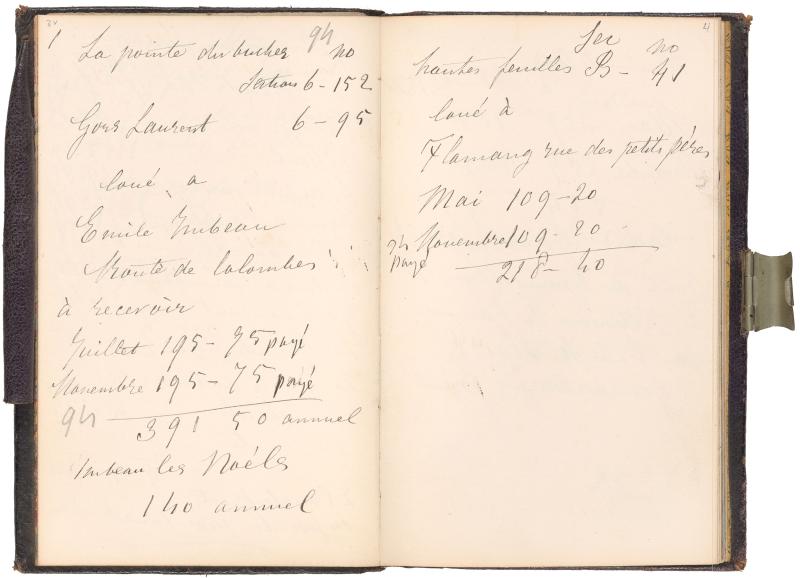 1 La pointe du bucher 94 no
Section 6 - 152
Gour Laurent 6 - 95
loué a
Emile Imbeau
Route de Colombes
à recevoir
Juillet 195 - 75 payé
Novembre 195 - 75 payé
94 391 50 annuel
Imbeau les Noéls
140 annuel
4
Sec no
hautes feuilles B - 41
loué à
Flamang rue des petits pères
Mai 109 - 20
Novembre 109 - 20
94 payé
218 - 40